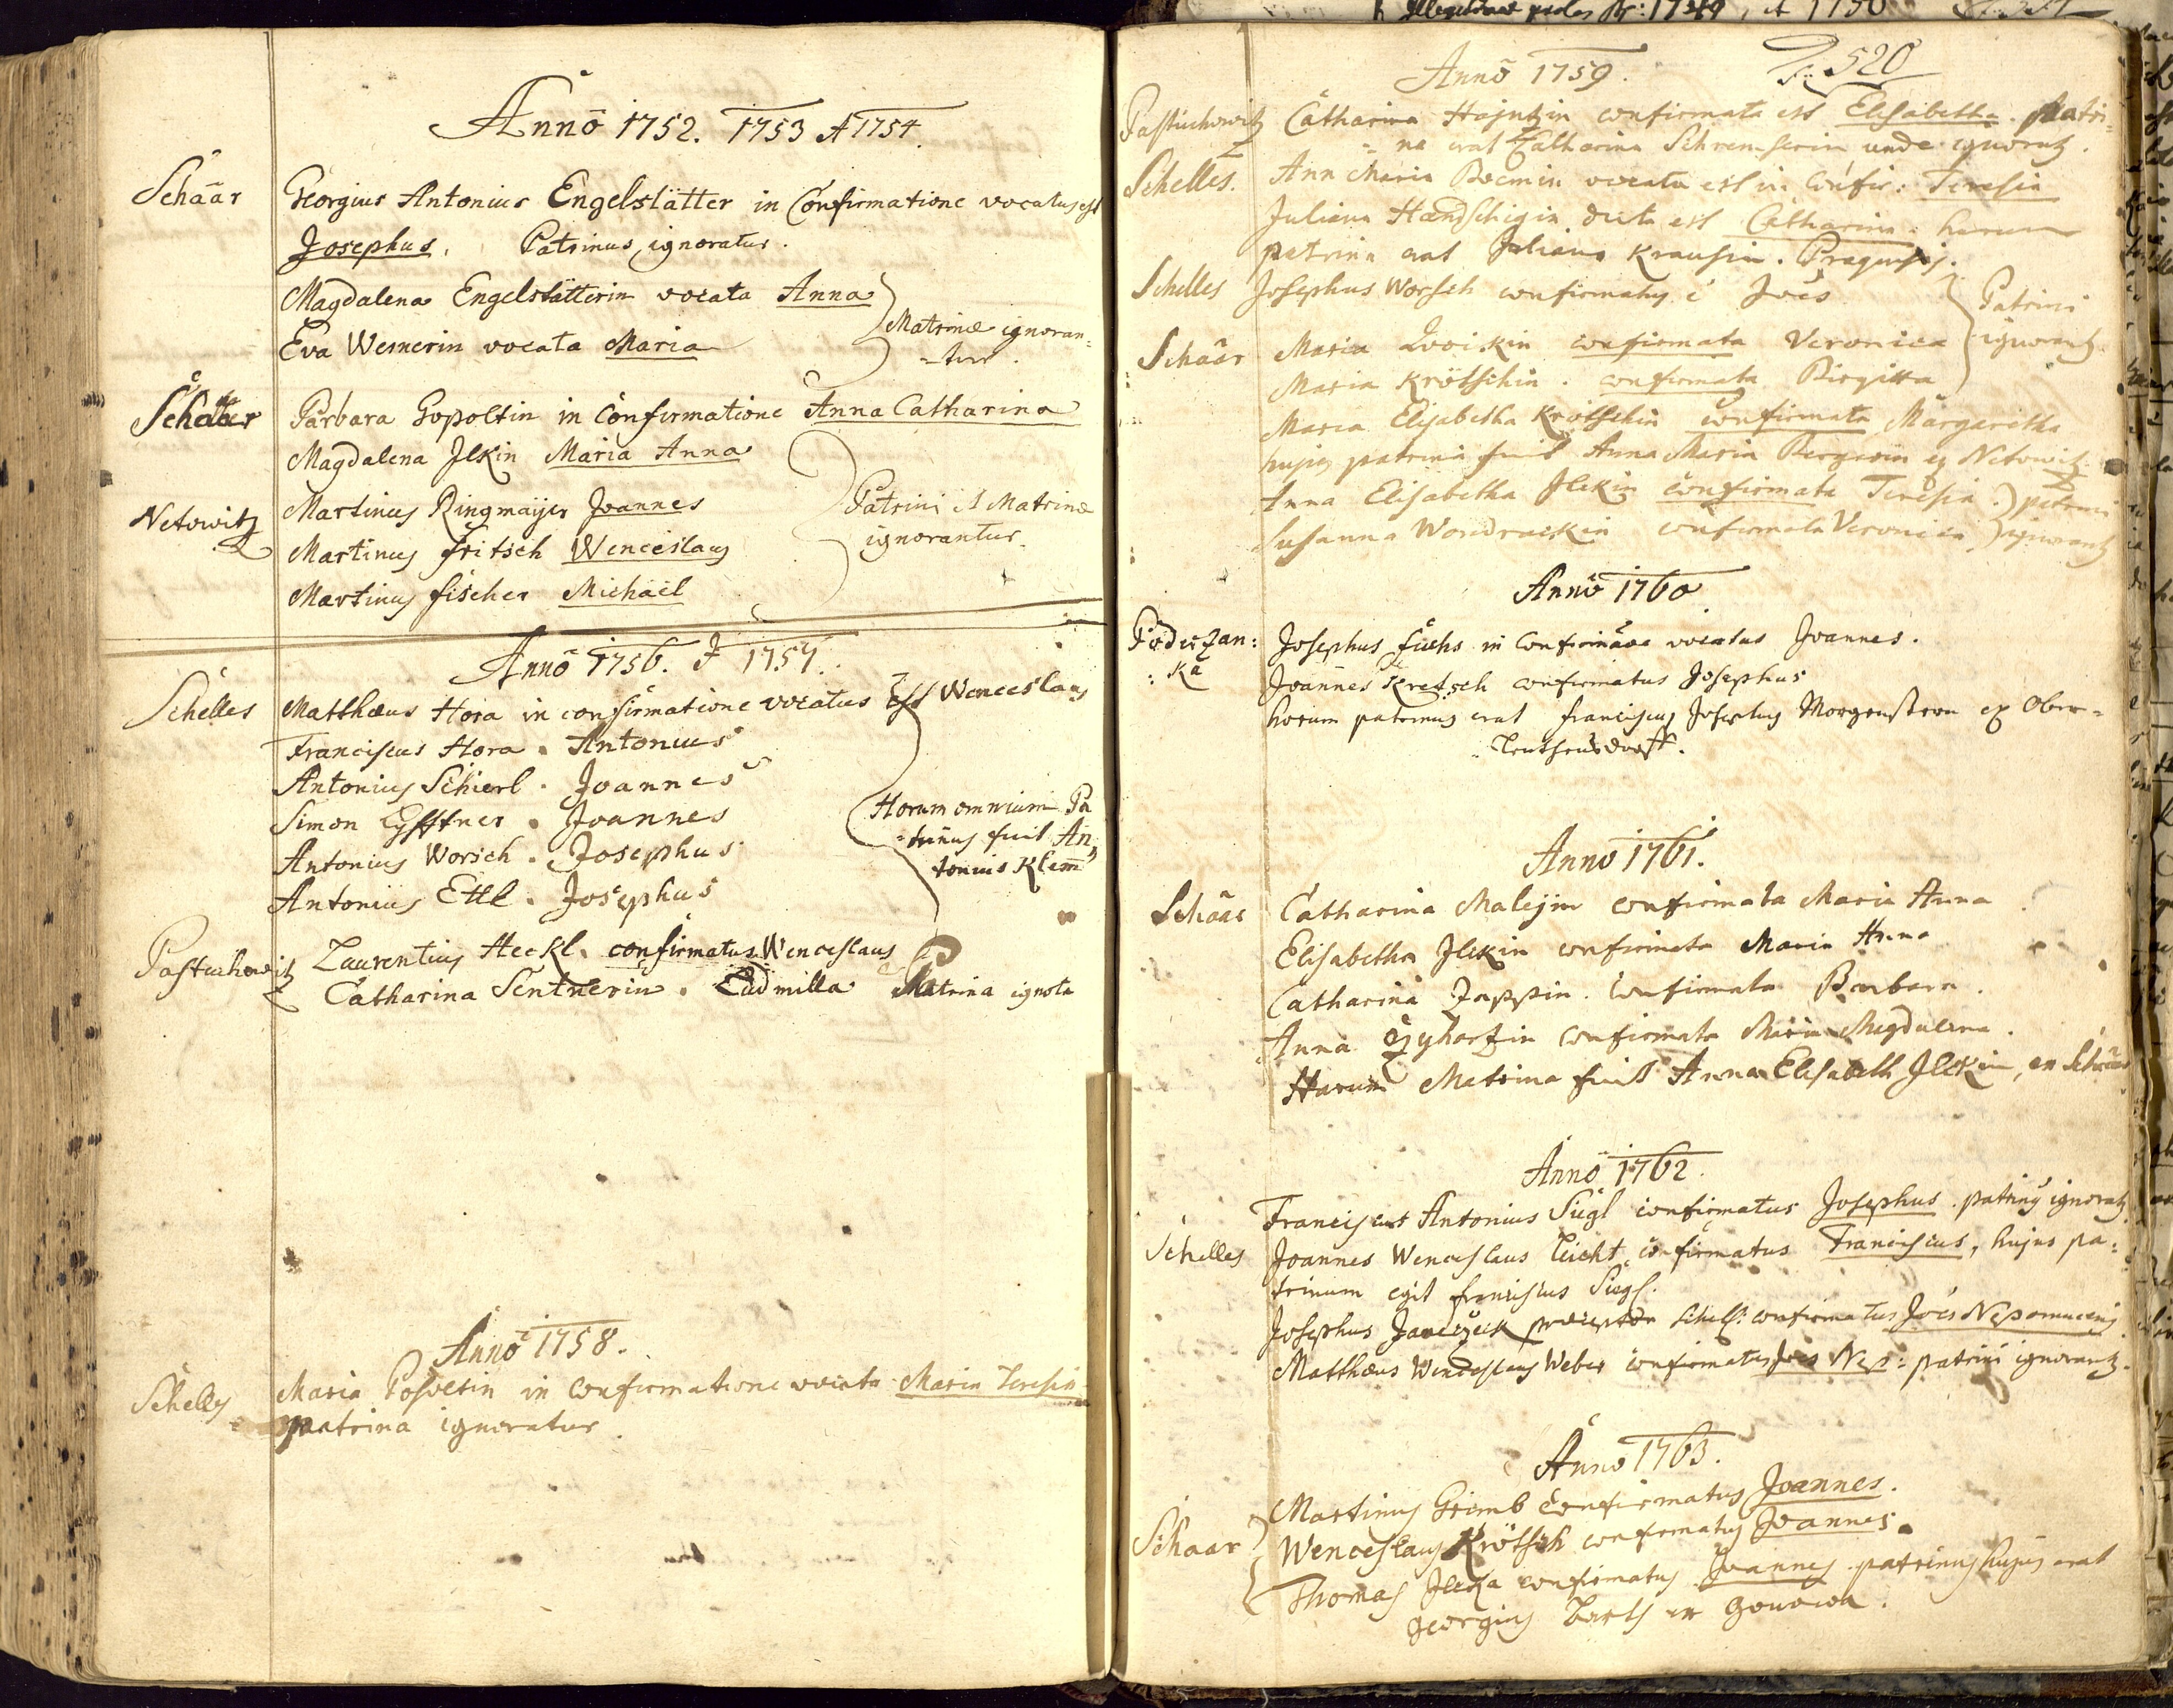 Anno 1752. 1753 et 1754.
Schäär Georgius Antonius Engelstätter in Confirmatione vocatus est
Josephus. Patrinus ignoratur.
Magdalena Engelstätterin vocata Anna
Eva Wernerin vocata Maria
Matrinæ ignoran=
=tur.
Schäär Barbara Gopoltin in Confirmatione Anna Catharina
Magdalena Jlkin Maria Anna
Netowitz Martinus Ringmaijer Joannes
Martinus Fritsch Wenceslaus
Martinus Fischer Michaël
Patrini et Matrinæ
ignorantur.
Anno 1756. et 1757.
Schelles Matthæus Hora in confirmatione vocatus Est Wenceslaus
Franciscus Hora. Antonius
Antonius Schierl. Joannes
Simon . Joannes
Antonius Worsch. Josephus
Antonius Ettl. Josephus
Horum omnium Pa
=trinus fuit An
tonius Klem
Pastuchowitz Laurentius Heckl. confirmatus Wenceslaus
Catharina Sentnerin. Ludmilla Matrina ignota
Anno 1758.
Schelles Maria in confirmatione vocata Maria Teresia
patrina ignoratur.
F: 520
Anno 1759.
Pastuchowitz Catharina Hajntzin confirmata est Elisabetha. Patri=
=na erat Catharina unde ignoratur.
Schelles. Anna Maria Boemin vocata est in Confir: Teresia
Juliana Handschigin dicta est Catharina. harum
patrina erat Juliana Krausin. Pragensis.
Schelles Josephus Worsch confirmatus e Joes
Schäär Maria confirmata Veronica
Maria Krötschin. confirmata Birgitta
Patrini
ignorantur
Maria Elisabetha Krötschin confirmata Margaretha
hujus patrina fuit Anna Maria Bergerin ex Netowitz
Anna Elisabetha Jlekin confirmata Teresia
Susanna Wondrackin confirmata Veronica
patrini
ignorantur
Anno 1760
Poderzan:
:ka Josephus Fuchs in Confirmaone vocatus Joannes.
Joannes Kretsch confirmatus Josephus
horum patrinus erat Franciscus Josephus Morgenstern ex Ober=
.
Anno 1761.
Schäär Catharina Malijin confirmata Maria Anna
Elisabetha Jlekin confirmata Maria Anna
Catharina Zappin. Confirmata Barbara.
Anna confirmata Maria Magdalena.
Harum Matrina fuit Anna Elisabeth Jlekin, ex Schäär
Anno 1762.
Franciscus Antonius Siegl confirmatus Josephus. patrinus ignoratur
Schelles Joannes Wenceslaus Leicht confirmatus Franciscus, hujus pa=
trinum egit Franciscus Siegl.
Josephus Janeczeck præceptor Schell: confirmatus Joes Nepomucenus
Matthæus Wenceslaus Weber confirmatus Joes Nep: patrini ignorantur.
Anno 1763.
Schaar Martinus Grimb Confirmatus Joannes.
Wenceslaus Krötsch confirmatus Joannes.
Thomas Jleka confirmatus Joannes. patrinus hujus erat
Georgius ex .